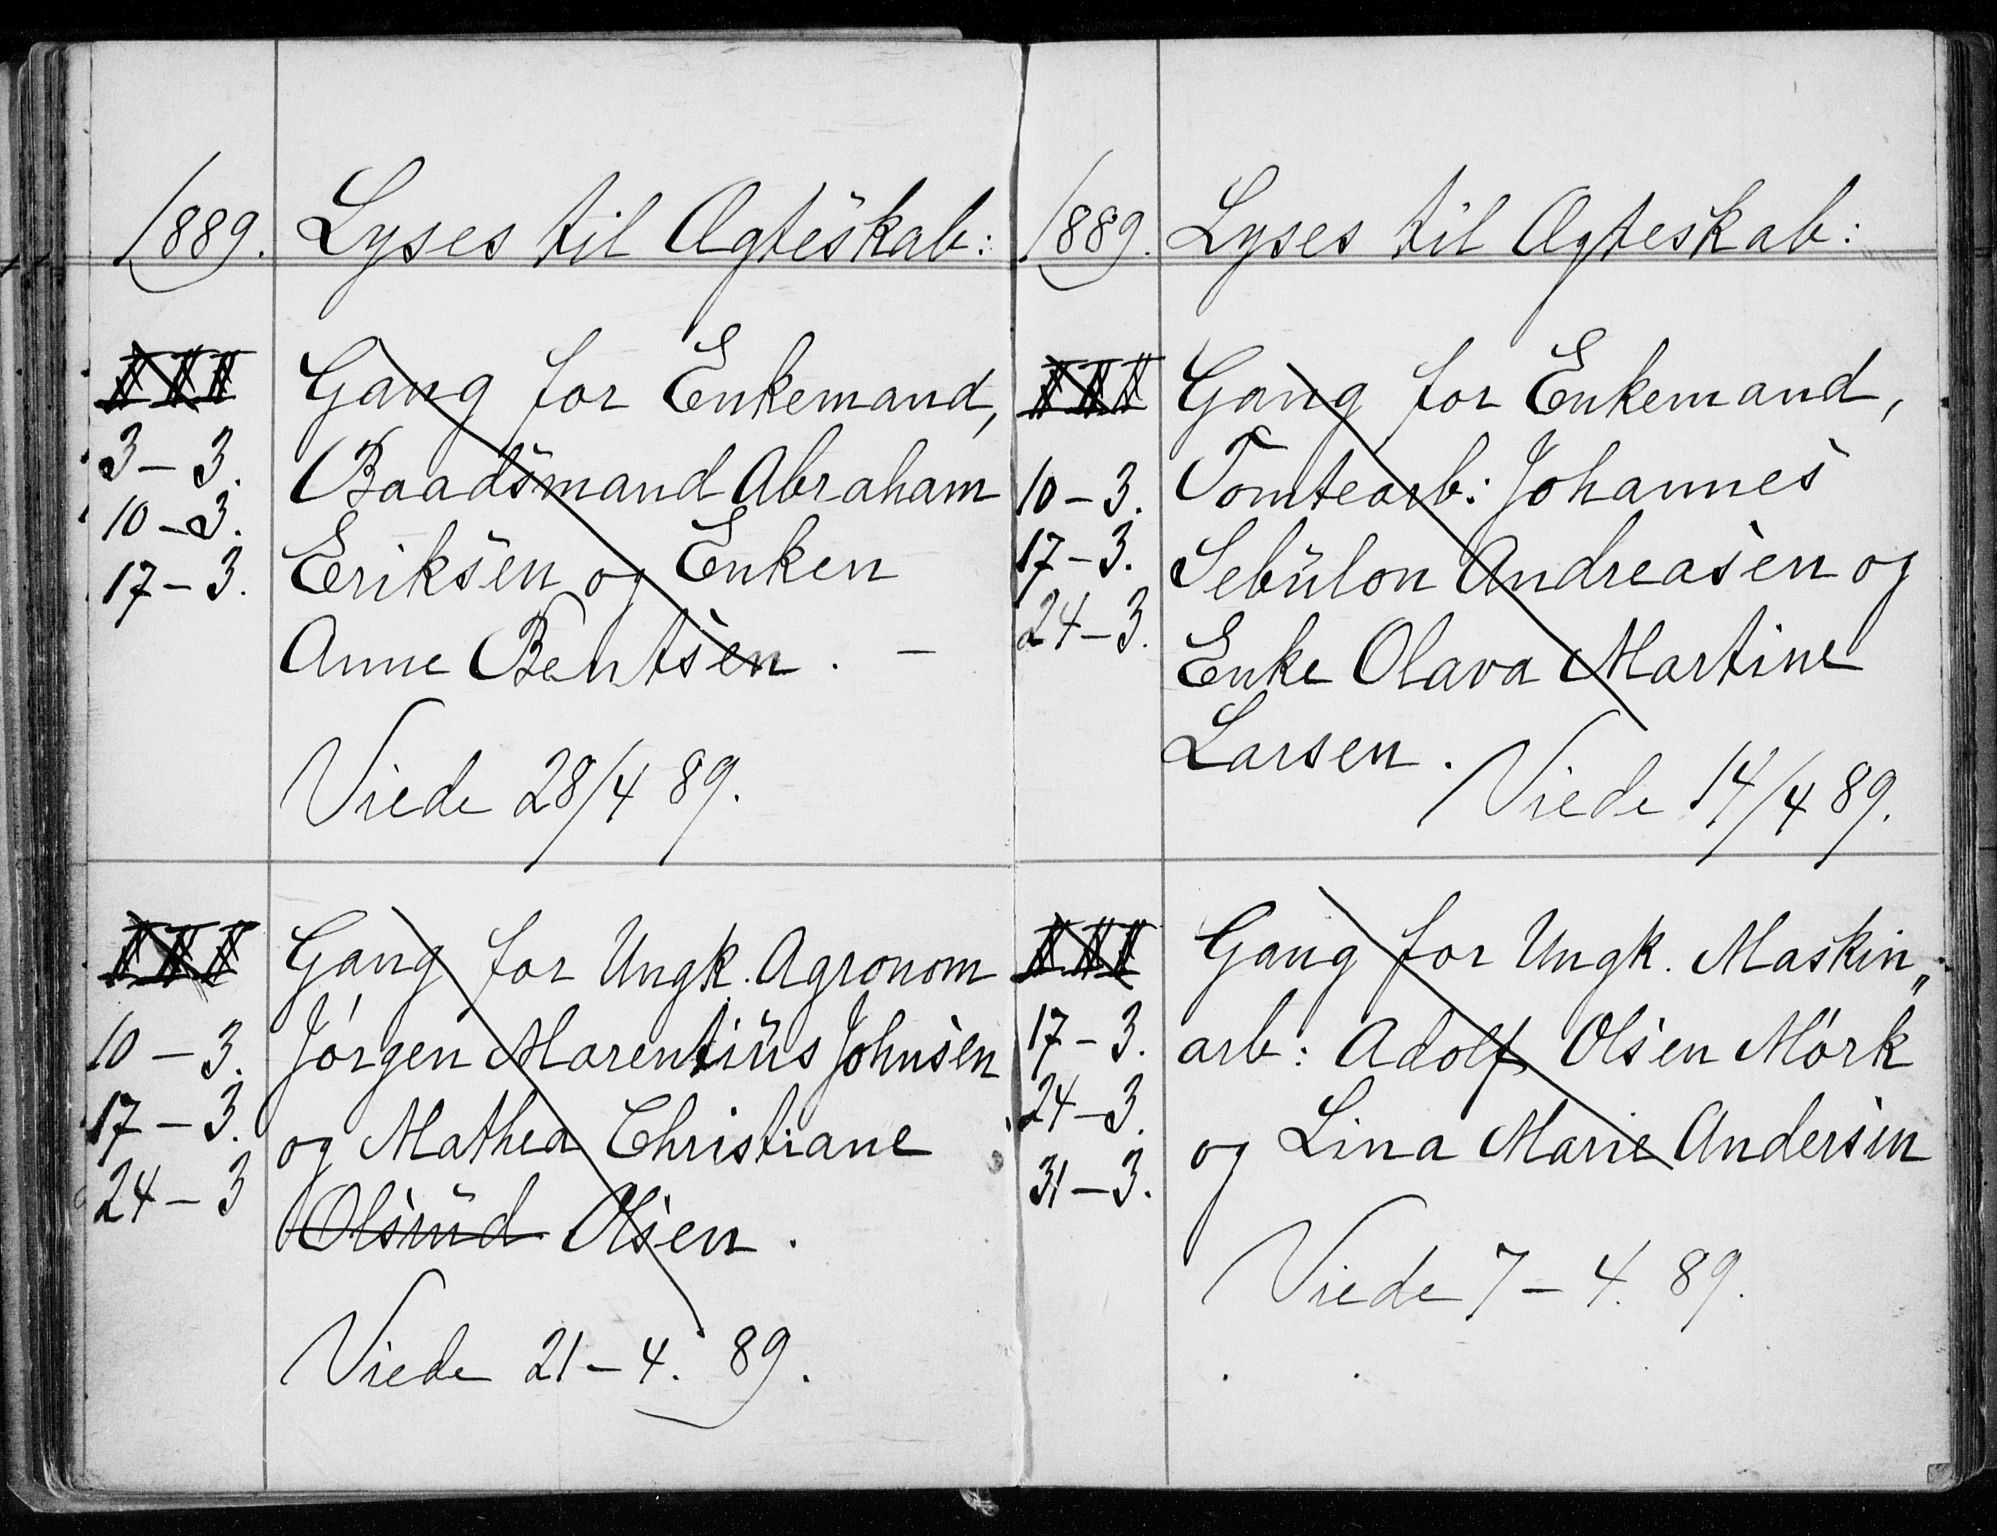 1889. Lyses til Ægteskab:
III Gang for Enkemand,
3 - 3. Baadsmand Abraham
10 - 3. Eriksen og Enken
17 - 3. Anne Bentsen. -
Viede 28/4 89.
III Gang for Ungk. Agronom
10 - 3. Jörgen Marentius Johnsen
17 - 3. og Mathea Christiane
24 - 3 Olsrud Olsen.
Viede 21 - 4. 89.
1889. Lyses til Ægteskab:
III Gang for Enkemand,
10 - 3. Tomtearb: Johannes
17 - 3. Sebulon Andreasen og
24 - 3. Enke Olava Martine
Larsen. Viede 14/4 89.
III Gang for Ungk. Maskin„
17 - 3. arb: Adolf Olsen Mörk
24 - 3. og Lina Marie Andersen
31 - 3.
Viede 7 - 4. 89.